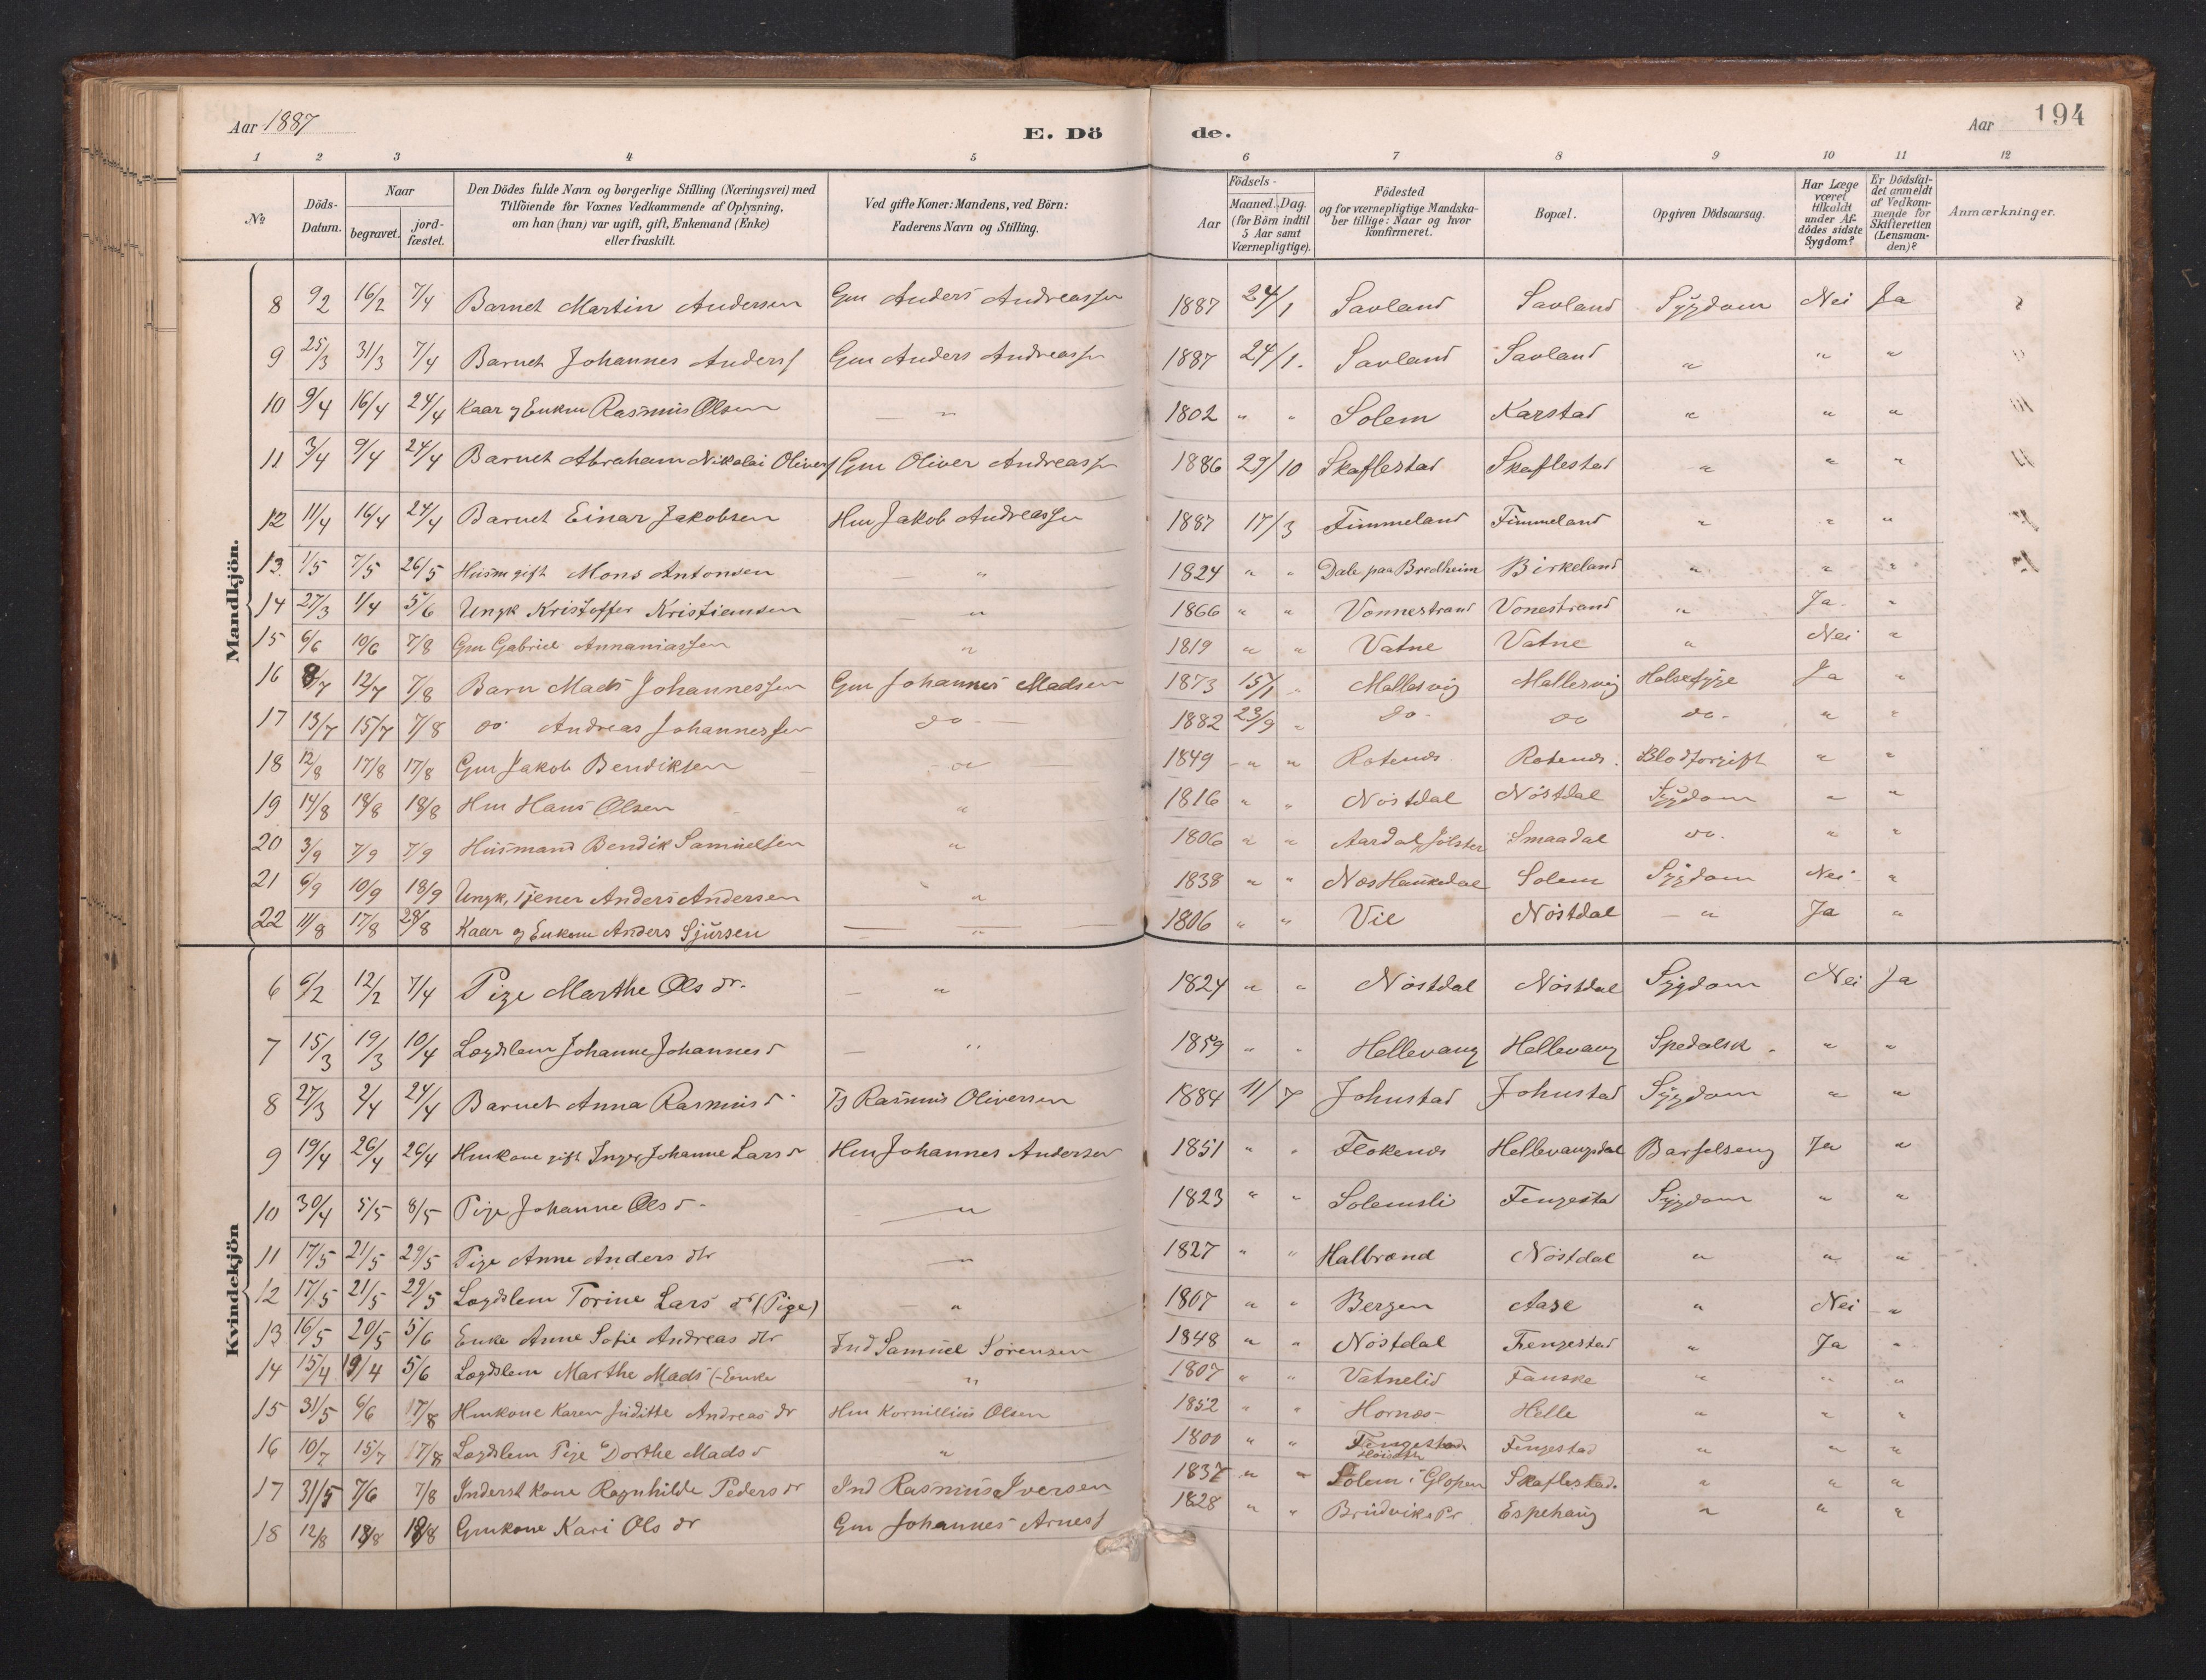 Aar 1887 E. Dö de. Aar 194
1 2 3 4 5 6 7 8 9 10 11 12
№ Döds-Datum. Naar begravet. jord-fæstet. Den Dödes fulde Navn og borgerlige Stilling (Næringsvei) med Tilföiende for Voxnes Vedkommende af Oplysning, om han (hun) var ugift, gift, Enkemand (Enke) eller fraskilt. Ved gifte Koner: Mandens, ved Börn: Faderens Navn og Stilling. Födsels- Aar Maaned. Dag. (for Börn indtil 5 Aar samt Værnepligtige). Födested og for værnepligtige Mandskaber tillige: Naar og hvor konfirmeret. Bopæl. Opgiven Dödsaarsag. Har Læge været tilkaldt under Afdödes sidste Sygdom? Er Dödsfaldet anmeldt af Vedkommende for Skifteretten (Lensmanden)? Anmærkninger.
Mandkjön.
8 9/2 16/2 7/4 Barnet Martin Andersen Gm Anders Andreassen 1887 24/1 Savland Savland Sygdom Nei Ja
9 25/3 31/3 7/4 Barnet Johannes Anders Gm Anders Andreassen 1887 24/1. Savland Savland " " "
10 9/4 16/4 24/4 Kaar og Enkm Rasmus Olsen " 1802 " " Solem Karstad " " "
11 3/4 9/4 24/4 Barnet Abraham Nikolai Olivers Gm Oliver Andreassen 1886 29/10 Skaflestad Skaflestad " " "
12 11/4 16/4 24/4 Barnet Einar Jakobsen Hm Jakob Andreassen 1887 17/3 Fimmeland Fimmeland " " "
13. 1/5 7/5 26/5 Husm gift Mons Antonsen " 1824 " " Dale paa Bredheim Birkeland " " "
14 27/3 1/4 5/6 Ungk Kristoffer Kristiansen " 1866 " " Vonnestrand Vonestrand " Ja. "
15 6/6 10/6 7/8 Gm Gabriel Annaniassen " 1819 " " Vatne Vatne " Nei "
16 8/7 12/7 7/8 Barn Mads Johannessen Gm Johannes Madsen 1873 15/1 " Mallasvig Mallesvig Halsesyge Ja "
17 13/7 15/7 7/8 do Andreas Johannessen do 1882 23/9 " do do do " "
18 12/8 17/8 17/8 Gm Jakob Bendiksen " 1849 " " Rotenes Rotenes. Blodforgift " "
19 14/8 18/8 18/8 Hm Hans Olsen " 1816 " " Nöstdal Nöstdal Sygdom " "
20 3/9 7/9 7/9 Husmand Bendik Samuelsen " 1806 " " Aardal Jölster Smaadal do. " "
21 6/9 10/9 18/9 Ungk, Tjener Anders Andersen " 1838 " " Næs Haukedal Solem Sygdom Nei "
22 11/8 17/8 28/8 Kaar og Enkem Anders Sjursen " 1806 " " Vie Nöstdal " Ja "
Kvindekjön
6 6/2 12/2 7/4 Pige Marthe Ols dr. " 1824 " " Nöstdal Nöstdal Sygdom Nei Ja
7 15/3 19/3 10/4 Lægdslem Johanne Johannes d " 1859 " " Hellevang Hellevang Spedalsk " "
8 27/3 2/4 24/4 Barnet Anna Rasmus d Is Rasmus Oliversen 1884 11/7 Johnstad Johnstad Sygdom " "
9 19/4 26/4 26/4 Hmkone gift Inger Johanne Lars d Hm Johannes Andersen 1851 " " Flokenes Hellevangsdal Barselseng Ja "
10 30/4 5/5 8/5 Pige Johanne Ols d " 1823 " " Solemsli Fengestad Sygdom " "
11 17/5 21/5 29/5 Pige Anne Anders dtr " 1827 " " Halbrend Nöstdal " " "
12 17/5 21/5 29/5 Lægdslem Torine Lars dr (Pige) " 1807 " " Bergen Aase " Nei "
13 16/5 20/5 5/6 Enke Anne Sofie Andreas dtr Ind Samuel Sörensen 1848 " " Nöstdal Fengestad " Ja "
14 15/4 19/4 5/6 Lægdslem Marthe Mads (-Enke " 1807 " " Vatnelid Fauske " " "
15 31/5 6/6 17/8 Hmkone Karen Juditte Andreas dr Hm Kornillius Olsen 1852 " " Hornæs Helle " " "
16 10/7 15/7 17/8 Lægdslem Pige Dorthe Mads d " 1800 " " Fengestad Fengestad " " "
17 31/5 7/6 7/8 Inderst kone Ragnhilde Peders dr Ind Rasmus Iversen 1837 " " Solem i Glopen Skaflestad. " " "
18 12/8 18/8 18/8 Gmkone Kari Ols dr Gm Johannes Arness 1828 " " Brudviks Pr Espehaug " " "